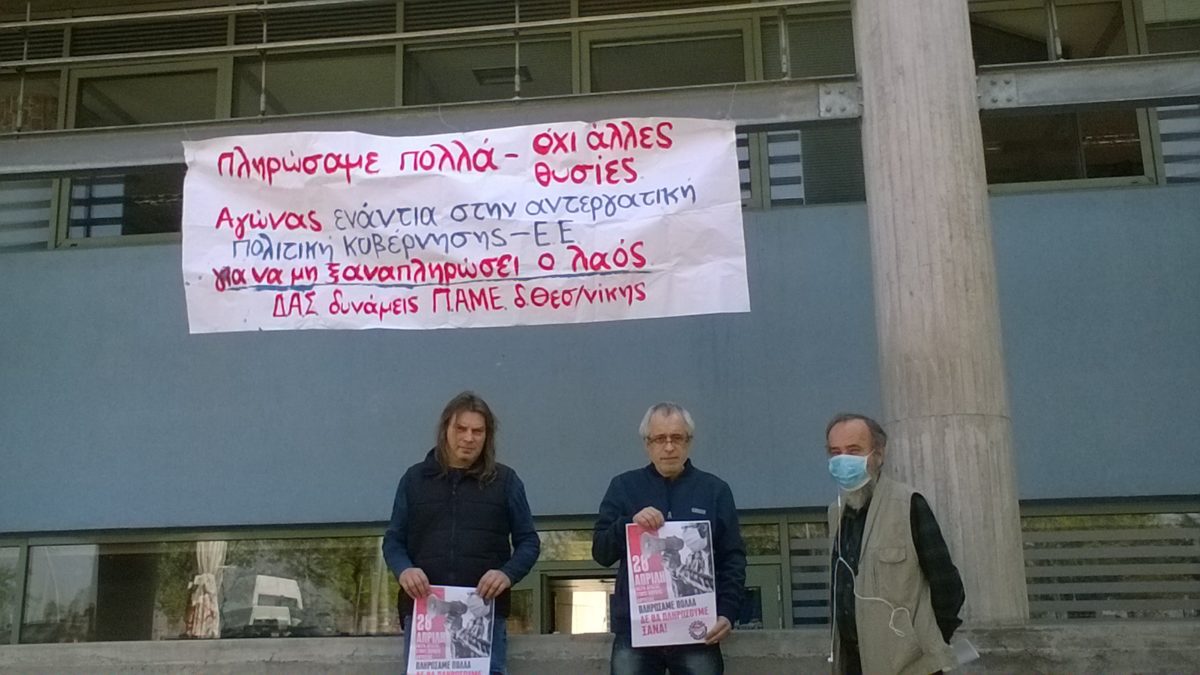 Πληρώσαμε πολλά - όχι άλλες
θυσίες
Αγώνας ενάντια στην αντεργατική
πολιτική κυβέρνησης - Ε.Ε
για να μη ξαναπληρώσει ο λαός
ΔΑΣ δυνάμεις Π.ΑΜΕ. δ.Θεσ/νίκης
28
ΑΠΡΙΛΗ
ΠΛΗΡΩΣΑΜΕ ΠΟΛΛΑ
ΔΕ ΘΑ ΠΛΗΡΩΣΟΥΜΕ
28
ΑΠΡΙΛΗ
ΠΛΗΡΩΣΑΜΕ ΠΟΛΛΑ
ΔΕ ΘΑ ΠΛΗΡΩΣΟΥΜΕ
ΞΑΝΑ!